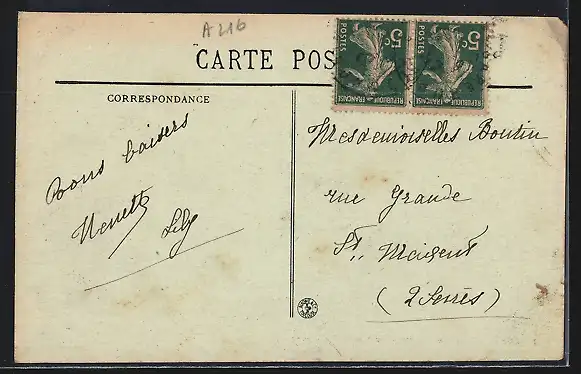 A 216
CARTE POS
5c
POSTES
REPUBLIQUE FRANÇAISE
5c
POSTES
REPUBLIQUE FRANÇAISE
CORRESPONDANCE
Bons baisers
Nenette
Lily
Mesdemoiselles Boutin
rue Grande
St. Maixent
(2 Sevres)